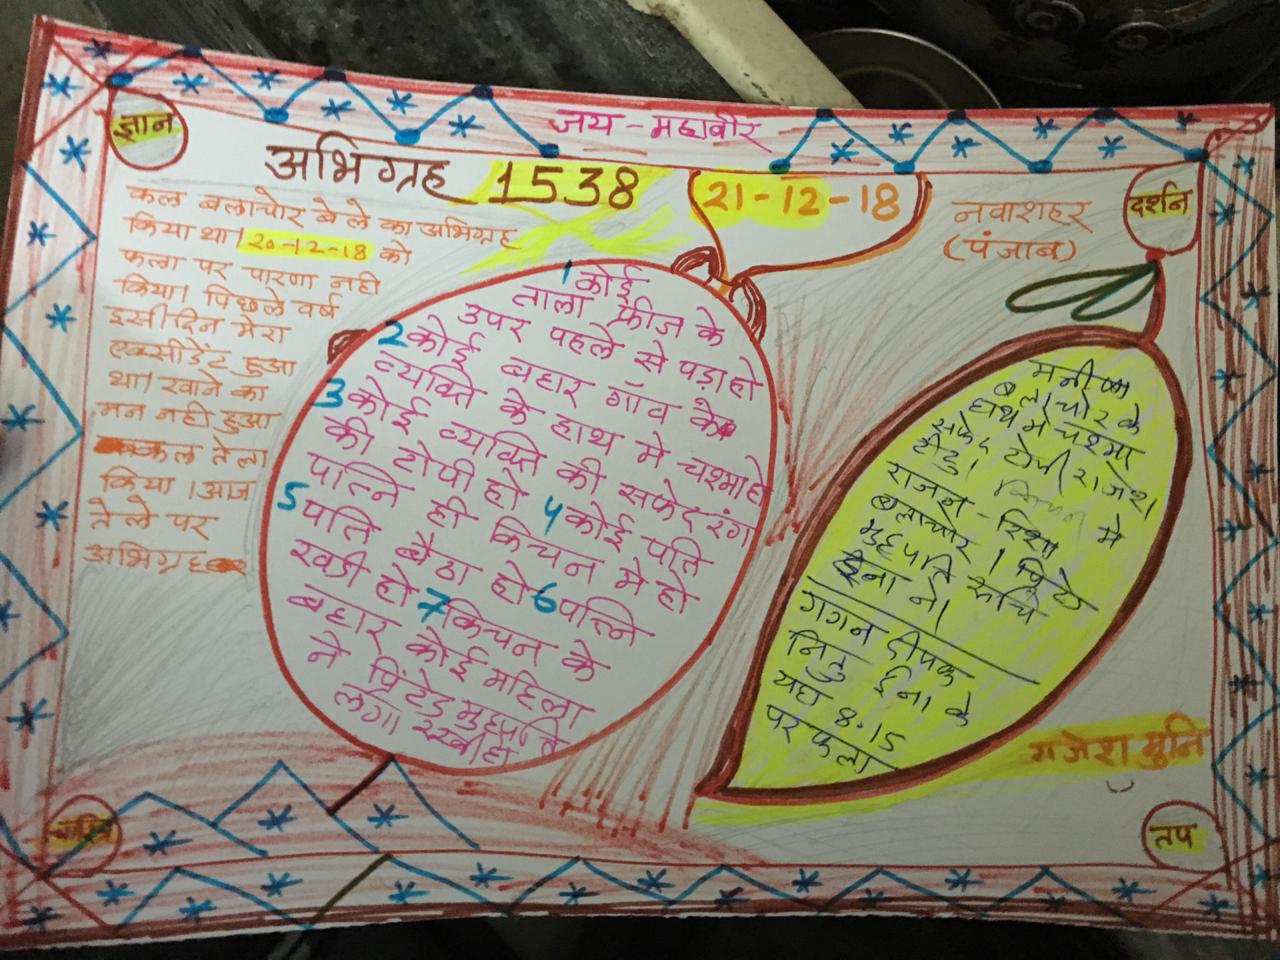 जय - महावीर
ज्ञान
अभिग्रह 1538
21-12-18
नवाशहर
(पंजाब)
दर्शन
कल बलाचोर बेले का अभिग्रह
किया था। 20-12-18 को
फला पर पारणा नही
किया। पिछले वर्ष
इसी दिन मेरा
एक्सीडेंट हुआ
था। खाने का
मन नही हुआ
कल तेला
किया। आज
तेले पर
अभिग्रह
1 कोई
ताला फ्रीज के
उपर पहले से पड़ा हो
2 कोई बहार गॉव के
व्यक्ति के हाथ मे चश्मा हो
3 कोई व्यक्ति की सफेद रंग
की टोपी हो 4 कोई पति
पत्नि ही किचन मे हो
5 पति बैठा हो 6 पत्नि
खडी हो 7 किचन के
बहार कोई महिला
ने प्रिंटेड मुहपत्ति
लगा रखी हो
मनीष
बलाचोर के
हाथ मे चश्मा
सफेद टोपी राजेश
राजन - मे
बलाचोर। प्रिंटेड
मुहपति रूचि
ईना ने।
गगन दीपक
नितु ईना के
यहा 8.15
पर फला
गजेश मुनि
चारित्र
तप